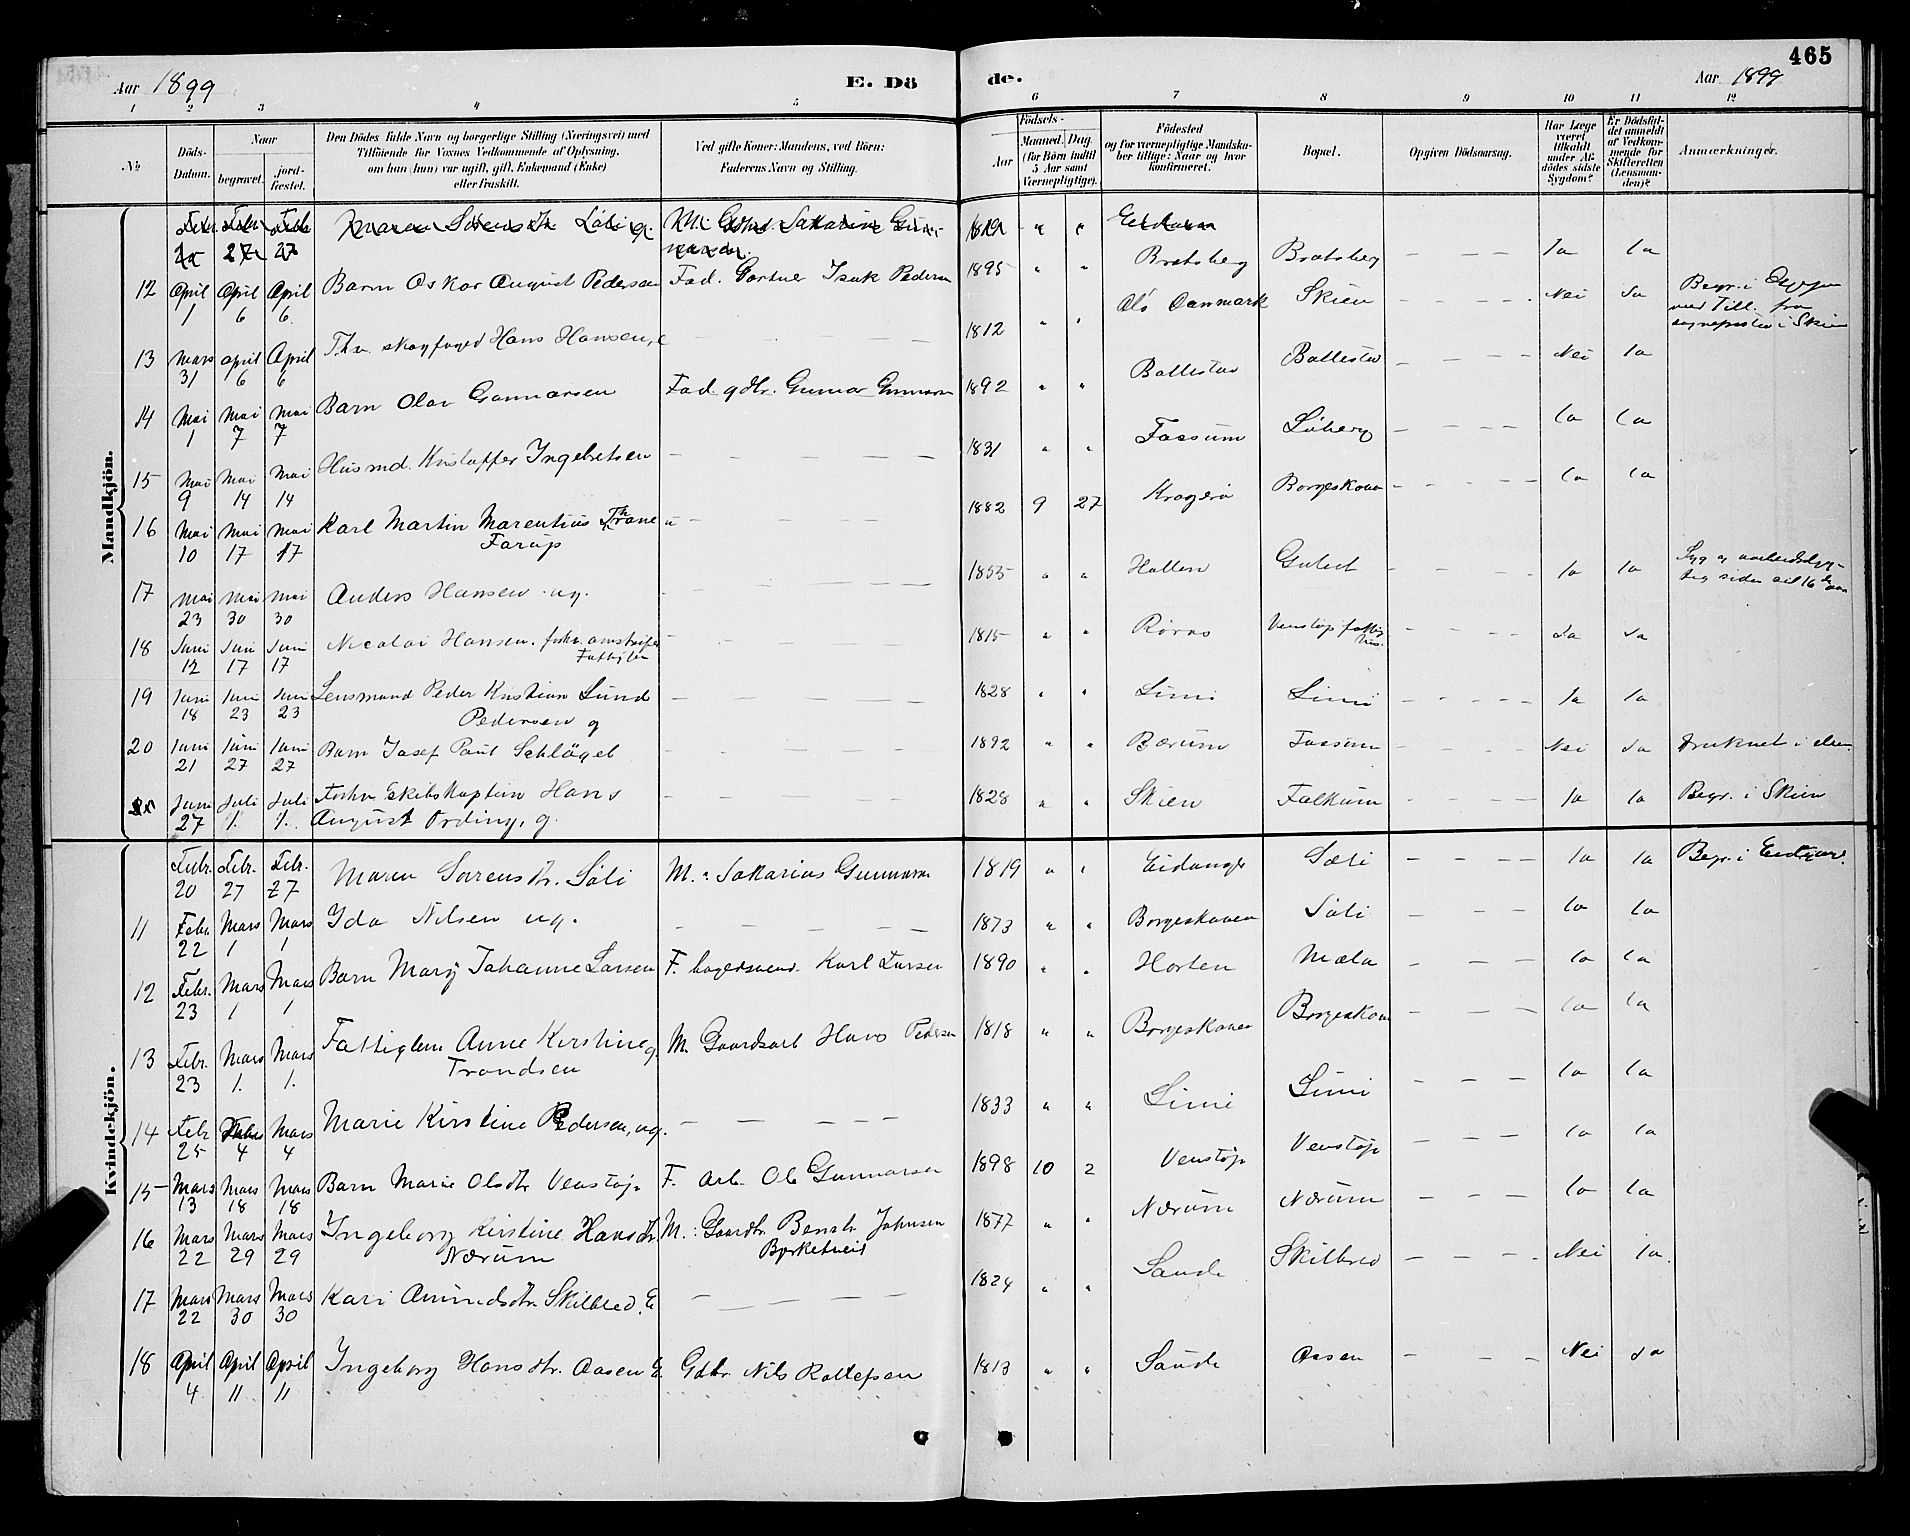 465
Aar 1899
E. Dö
de.
Aar 1899
1 2 3 4 5 6 7 8 9 10 11 12
No
Döds-Datum.
Naar
begravet.
jord-fæstet.
Den Dödes fulde Navn og borgerlige Stilling (Næringsvei) med
Tilföiende for Voxnes Vedkommende af Oplysning,
om han (hun) var ugift, gift, Enkemand (Enke)
eller fraskilt.
Ved gifte Koner: Mandens, ved Börn:
Faderens Navn og Stilling.
Födsels-
Aar
Maaned. Dag
(for Börn indtil
5 Aar samt
Værnepligtige).
Födested
og for værnepligtige Mandska-
ber tillige: Naar og hvor
konfirmeret.
Bopæl.
Opgiven Dödsaarsag.
Har Læge
været
tilkaldt
under Af-
dödes sidste
Sygdom?
Er Dödsfal-
det anmeldt
af Vedkom-
mende for
Skifteretten
(Lensman-
den)?
Anmærkninger.
Mandkjön.
Febr. Febr. Febr. Maren Sørensdtr. Søli g. M. Gbhd. Sakarias Gun-
27 27 narsen. 1819 " "
12 April 1 April 6 April 6 Barn Oskar August Pedersen Fad. Gartner Isak Pedersen 1895 " " Bratsberg Bratsberg — — — Ja Ja
13 Mars 31 April 6 April 6 skogfoged Hans Hansen, — — — 1812 " " Danmark Skien — — — Nei Ja Begr. i
med Till. fra
sogneprsten i Skien
14 Mai 1 Mai 7 Mai 7 Barn Olav Gunnarsen Fad. gdbr. Gunnar Gunnarsen 1892 " " Ballestad Ballestad — — — Nei Ja
15 Mai 9 Mai 14 Mai 14 Husmd. Kristoffer Ingebretsen — — — 1831 " " Fossum Løberg — — — Ja Ja
16 Mai 10 Mai 17 Mai 17 Karl Martin Marentius Thrane — — — 1882 9 27 Kragerø Borgeskoven — — — Ja Ja
Farup
17 Mai 23 Mai 30 Mai 30 Anders Hansen ug. — — — 1855 " " Hollen Gulset — — — Ja Ja Syg og
18 Juni 12 Juni 17 Juni 17 Nicolai Hansen. — — — 1815 " " Røraas Venstøp fattig — — — Ja Ja
hus.
19 Juni 18 Juni 23 Juni 23 Lensmand Peder Kristian Lund — — — 1828 " " Limi Limi — — — Ja Ja
Pedersen g
20 Juni 21 Juni 27 Juni 27 Barn Josef Paul Schlögel — — — 1892 " " Bærum Fossum — — — Nei Ja druknet i elven
21 Juni 27 Juli 1. Juli 1. Forhv. Skibskaptein Hans — — — 1828 " " Skien Falkum — — — Ja Ja Begr. i Skien
August Ording, g.
Kvindekjön.
Febr. 20 Febr. 27 Febr. 27 Maren Sørensdtr. Søli M.: Sakarias Gunnarsen 1819 " " Eidanger Sæli — — — Ja Ja Begr. i Eidanger.
11 Febr. 22 Mars 1 Mars 1 Ida Nilsen ug. — — — 1873 " " Borgeskoven Søli — — — Ja Ja
12 Febr. 23 Mars 1 Mars 1 Barn Mary Johanne Larsen F. Karl Larsen 1890 " " Horten Mæla — — — Ja Ja
13 Febr. 23 Mars 1. Mars 1. Fattiglem Anne Kirstine g. M. Gaardsarb Hans Pedersen 1818 " " Borgeskoven Borgeskoven — — — Ja Ja
Trondsen
14 Febr 25 Mars 4 Mars 4 Marie Kirstine Pedersen, ug. — — — 1833 " " Limi Limi — — — Ja Ja
15 Mars 13 Mars 18 Mars 18 Barn Marie Olsdtr Venstøp F. Arb. Ole Gunnarsen 1898 10 2 Venstøp Venstøp — — — Ja Ja
16 Mars 22 Mars 29 Mars 29 Ingeborg Kirstine Hansdtr M.: Gaardbr. Johnsen 1877 " " Nærum Nærum — — — Ja Ja
Nærum
17 Mars 22 Mars 30 Mars 30 Kari Amundsdtr. Skilbred E. — — — 1824 " " Saude Skilbred — — — Nei Ja.
18 April 4 April 11 April 11 Ingeborg Hansdtr. Aasen E. Gdbr Nils Rollefsen 1813 " " Saude Aasen — — — Nei Ja